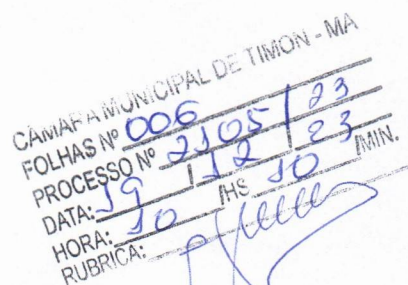 CÂMARA MUNICIPAL DE TIMON - MA
FOLHAS Nº 006
PROCESSO Nº 2105 / 23
DATA: 19 / 12 / 23
HORA: 10 /HS 10 /MIN.
RUBRICA: